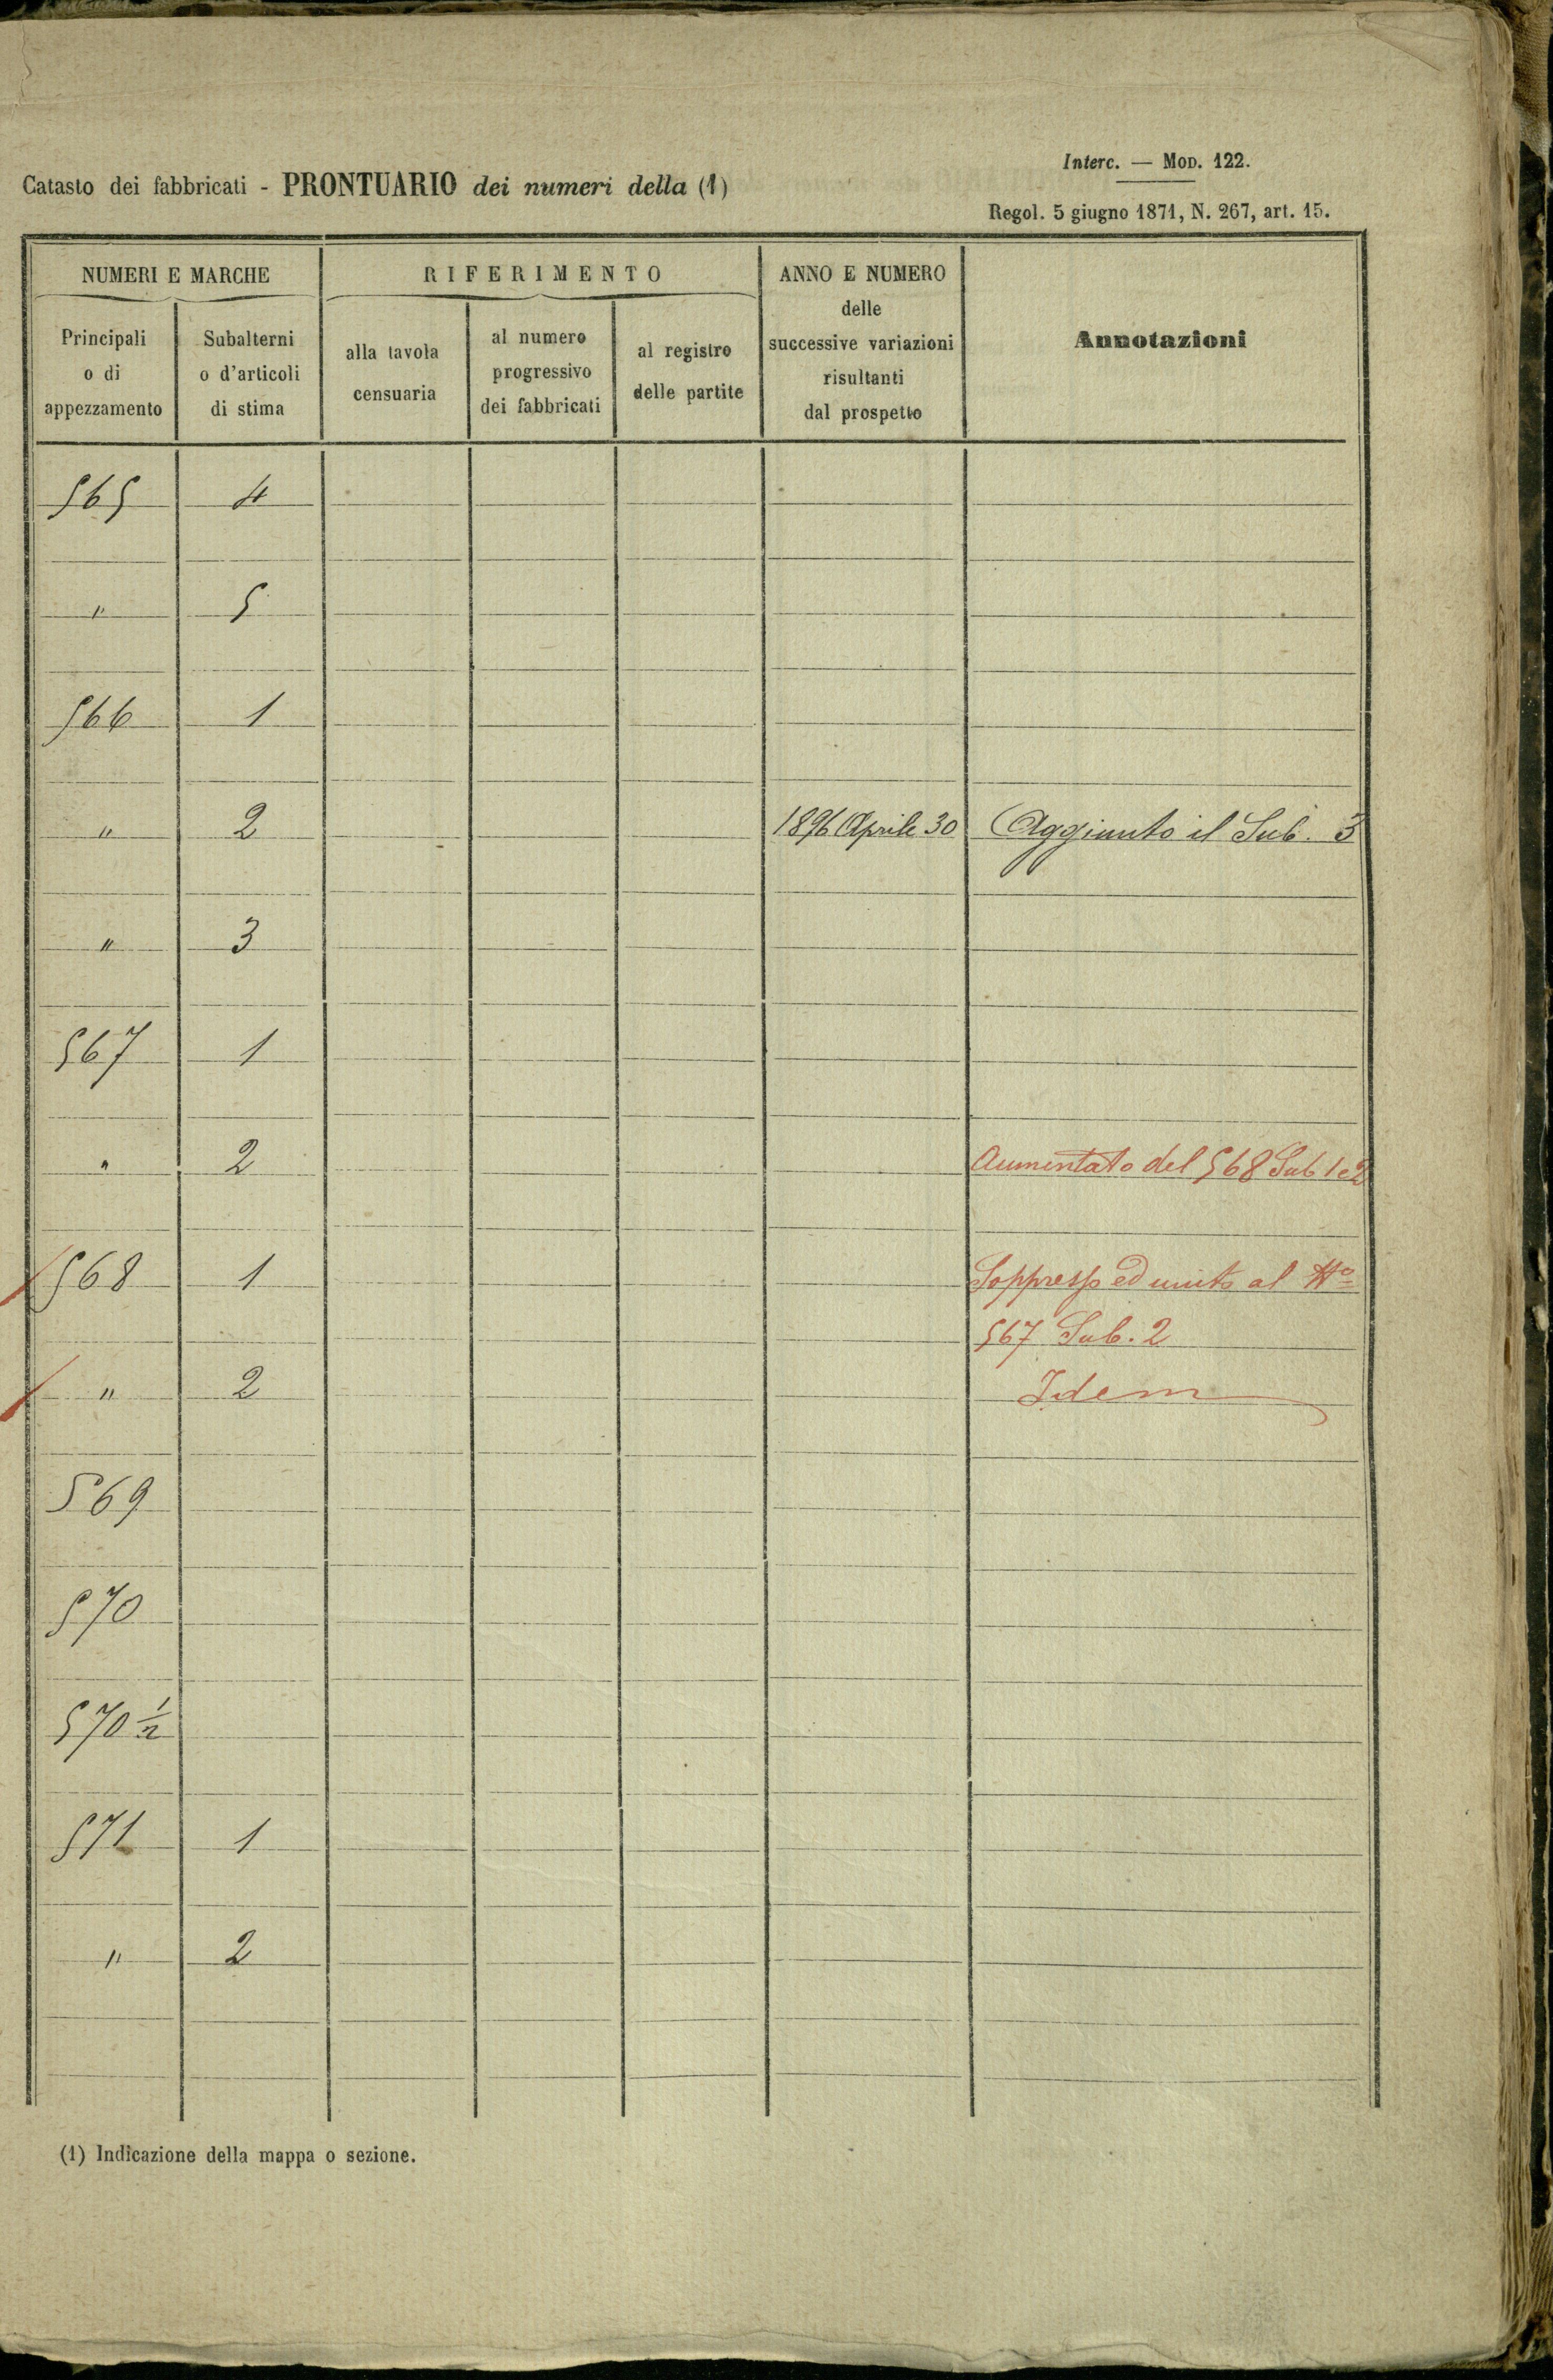 Interc. — Mod. 122.
Catasto dei fabbricati - PRONTUARIO dei numeri della (1)
Regol. 5 giugno 1871, N. 267, art. 15.
NUMERI E MARCHE
Principali
o di
appezzamento
Subalterni
o d'articoli
di stima
RIFERIMENTO
alla tavola
censuaria
al numero
progressivo
dei fabbricati
al registro
delle partite
ANNO E NUMERO
delle
successive variazioni
risultanti
dal prospetto
Annotazioni
565 4
" 5
566 1
" 2 1896 Aprile 30 Aggiunto il Sub. 3
" 3
567 1
" 2 Aumentato del 568 Sub 1 e 2
568 1 Soppresso ed unito al No
567 Sub. 2
" 2 Idem
569
570
570 1/2
571 1
" 2
(1) Indicazione della mappa o sezione.